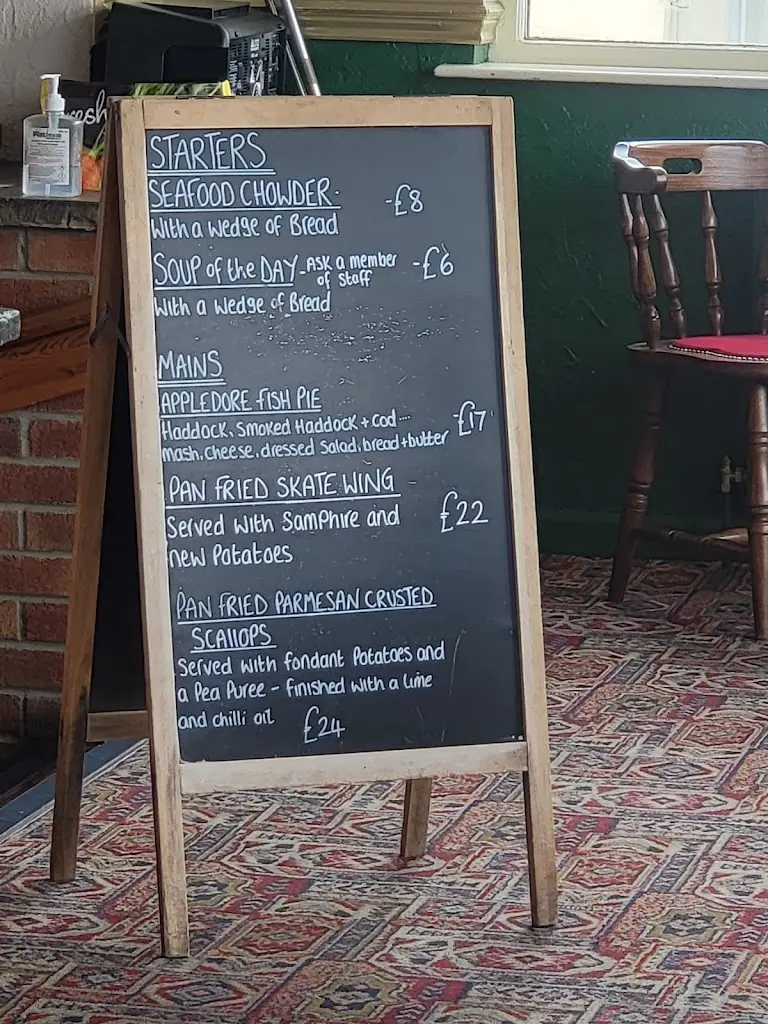 esh
STARTERS
SEAFOOD CHOWDER - £8
With a wedge of Bread
SOUP of the DAY - Ask a member of Staff - £6
With a Wedge of Bread
MAINS
APPLEDORE FISH PIE
Haddock, Smoked Haddock + Cod ... - £17
mash, cheese, dressed salad, bread + butter
PAN FRIED SKATE WING
Served with Samphire and £22
new Potatoes
PAN FRIED PARMESAN CRUSTED
SCALLOPS
Served with fondant Potatoes and
a Pea Puree - finished with a lime
and chilli oil £24